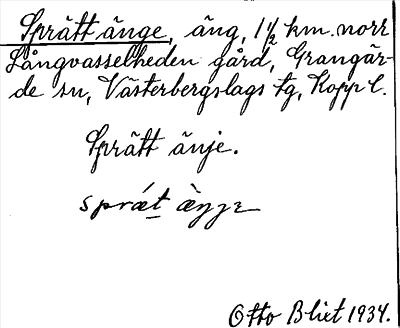 Sprätt änge, äng, 1 1/2 km. norr
Långvasselheden gård, Grangär-
de sn, Västerbergslags tg, Kopp l.
Sprätt änje.
Otto Blixt 1934.